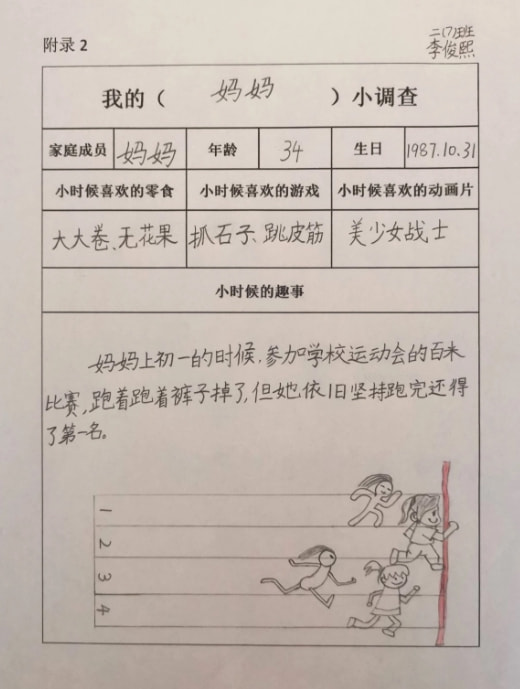 附录2
二(7)班
李俊熙
我的（ 妈妈 ）小调查
家庭成员 妈妈 年龄 34 生日 1987.10.31
小时候喜欢的零食 小时候喜欢的游戏 小时候喜欢的动画片
大大卷、无花果 抓石子、跳皮筋 美少女战士
小时候的趣事
妈妈上初一的时候，参加学校运动会的百米
比赛，跑着跑着裤子掉了，但她依旧坚持跑完还得
了第一名。
1
2
3
4